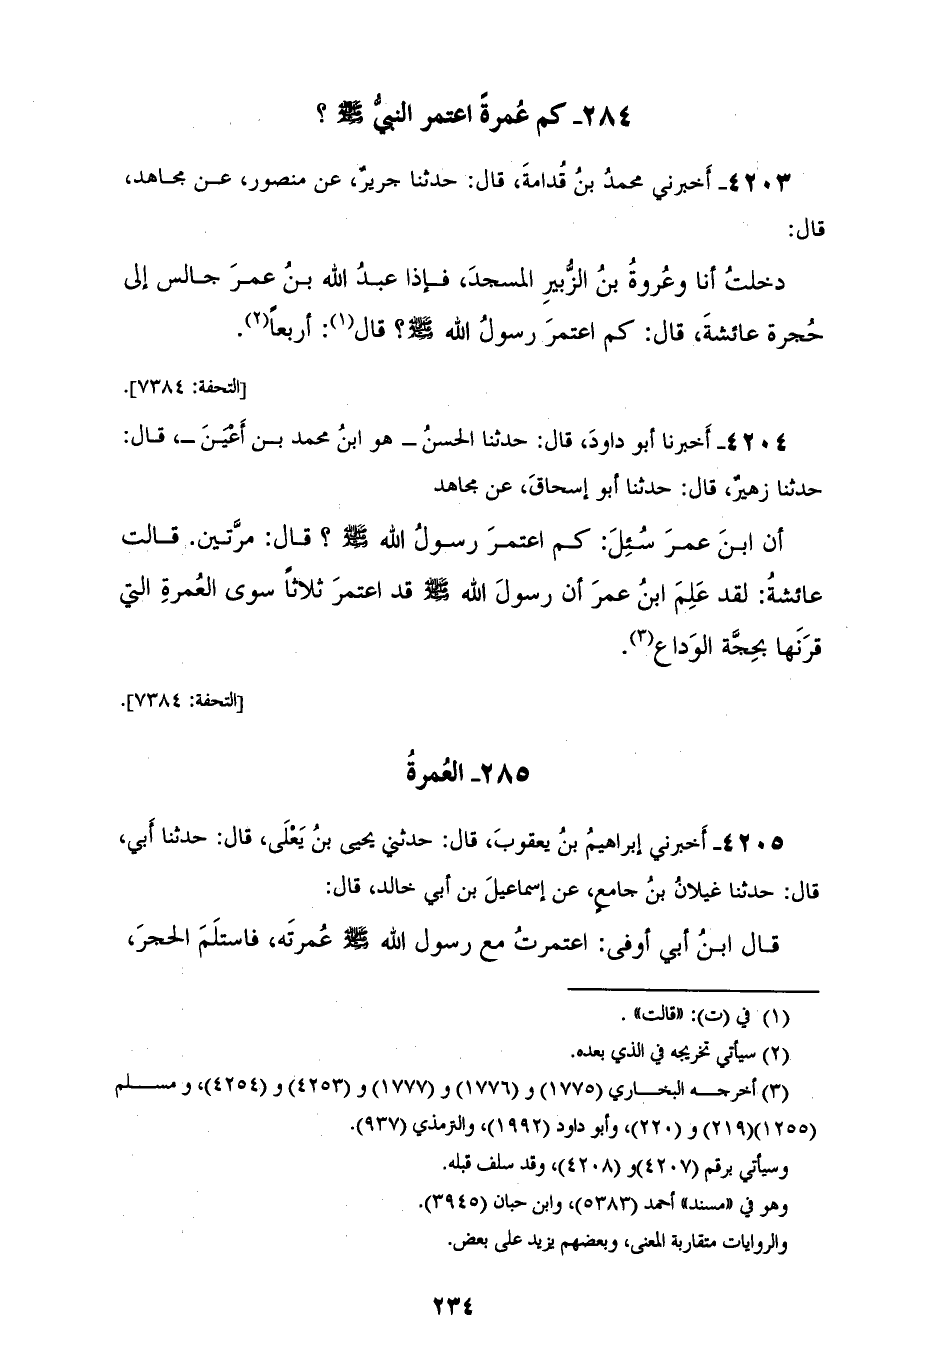 ٢٨٤ـ كم عُمرةً اعتمر النبيُّ ﷺ ؟
٤٢٠٣ـ أَخبرني محمدُ بنُ قُدامةَ، قال: حدثنا جريرٌ، عن منصور، عـن مجاهد،
قال:
دخلتُ أنا وعُروةُ بنُ الزُّبيرِ المسجدَ، فـإذا عبـدُ الله بـنُ عمـرَ جـالس إلى
حُجرة عائشةَ، قال: كم اعتمرَ رسولُ الله ﷺ؟ قال(١): أربعاً(٢).
[التحفة: ٧٣٨٤].
٤٢٠٤ـ أَخبرنا أبو داودَ، قال: حدثنا الحسنُ ـ هو ابنُ محمد بـن أَعْيَنَ ـ، قـال:
حدثنا زهيرٌ، قال: حدثنا أبو إسحاقَ، عن مجاهد
أن ابـنَ عمـرَ سُـئِلَ: كـم اعتمـرَ رسـولُ الله ﷺ ؟ قـال: مرَّتـين. قـالت
عائشةُ: لقد عَلِمَ ابنُ عمرَ أن رسولَ الله ﷺ قد اعتمرَ ثلاثاً سوى العُمرةِ التي
قرَنَها بحِجَّة الوَداع(٣).
[التحفة: ٧٣٨٤].
٢٨٥ـ العُمرةُ
٤٢٠٥ـ أَخبرني إبراهيمُ بنُ يعقوبَ، قال: حدثني يحيى بنُ يَعْلَى، قال: حدثنا أَبي،
قال: حدثنا غيلانُ بنُ جامعٍ، عن إسماعيلَ بن أبي خالد، قال:
قـال ابـنُ أبي أوفى: اعتمرتُ مع رسول الله ﷺ عُمرتَه، فاستلَمَ الحجرَ،
(١) في (ت): «قالت» .
(٢) سيأتي تخريجه في الذي بعده.
(٣) أخرجـه البخـاري (١٧٧٥) و (١٧٧٦) و (١٧٧٧) و (٤٢٥٣) و (٤٢٥٤)، و مسـلم
(١٢٥٥)(٢١٩) و (٢٢٠)، وأبو داود (١٩٩٢)، والترمذي (٩٣٧).
وسيأتي برقم (٤٢٠٧)و (٤٢٠٨)، وقد سلف قبله.
وهو في «مسند» أحمد (٥٣٨٣)، وابن حبان (٣٩٤٥).
والروايات متقاربة المعنى، وبعضهم يزيد على بعض.
٢٣٤